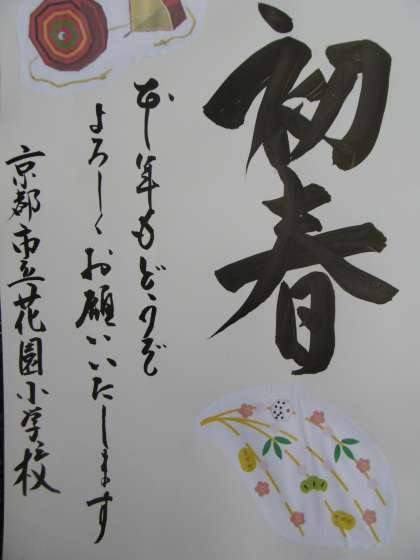 初春
本年もどうぞ
よろしくお願いいたします
京都市立花園小学校